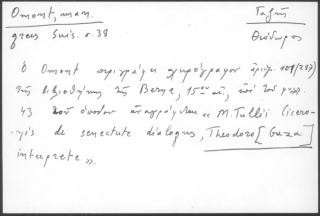 Omont, man. Γαζῆς
graecs Suis. σ. 38 Θεόδωρος
Ὁ Omont περιγράφει χειρόγραφον ἀριθ. 108 (237)
τῆς βιβλιοθήκης τῆς Berne, 15ου αἰ., τοῦ
43 τοῦ ὁποίου ἀναγράφεται « M. Tullii Cicero-
-nis de senectute dialogus, Theodoro [Gaza]
interprete ».